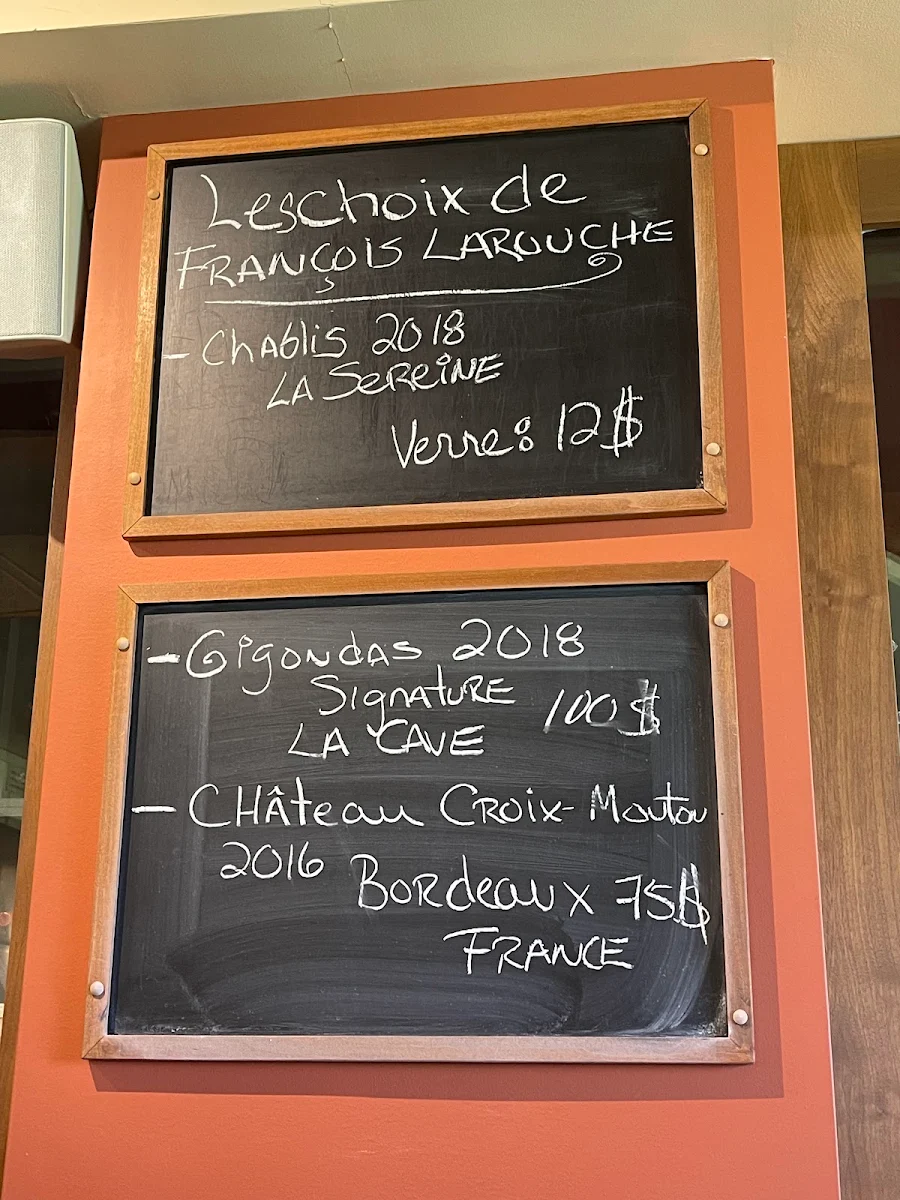 Les choix de
FRANÇOIS LAROUCHE
- Chablis 2018
LA SEREINE
Verre: 12$
- Gigondas 2018
SIGNATURE 100$
LA CAVE
- CHÂteau CROIX-Mouton
2016 BORdeaux 75$
FRANCE